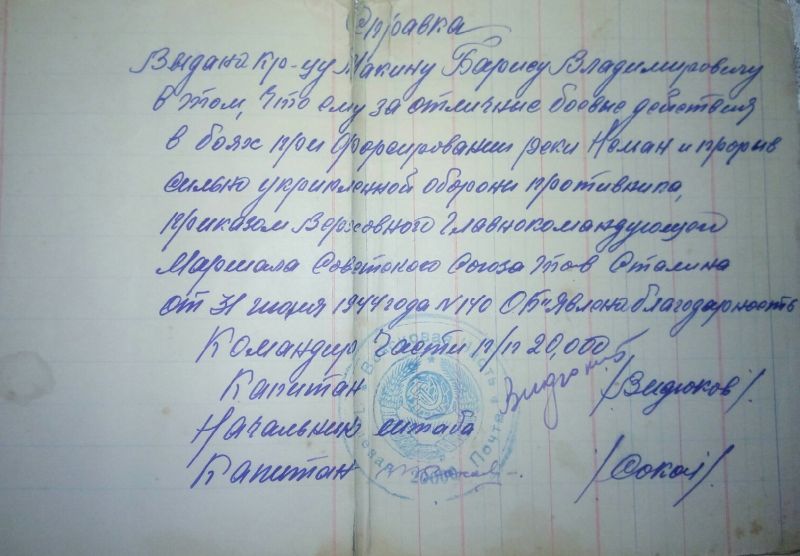 Справка
Выдана кр-цу Макину Барису Владимировичу
в том, что ему за отличние боевые действия
в боях при форсировании реки Неман и прорыв
сильно укрипленной оборони противника,
приказом Верховного Главнокомандующего
Маршала Советского Союза тов Сталина
от 31 июля 1944 года N 140 Об"явлена благодарность
Командир Части п/п 20,000
Капитан /Видюков/.
Начальник штаба
Капитан /Сокол/.
Почта
20000